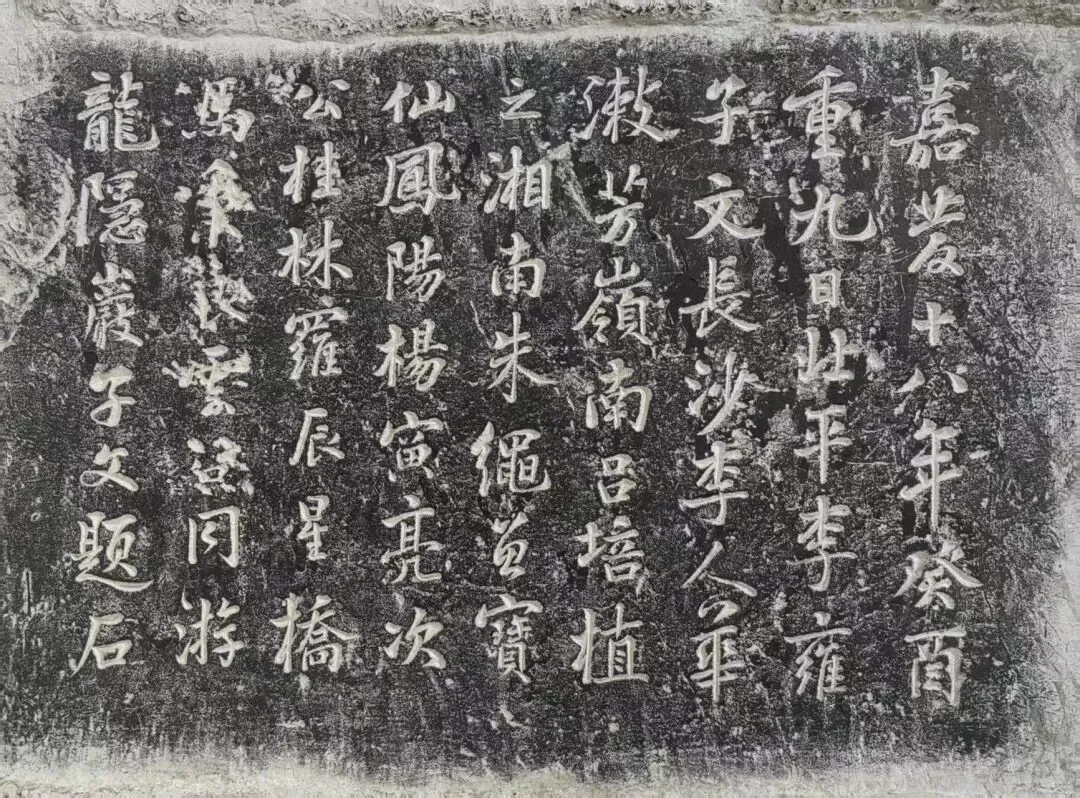 嘉慶十八年癸酉
重九日北平李雍
子文長沙李人華
漱芳嶺南呂培植
之湘南朱繩寶
仙鳳陽楊寅亮次
公桂林羅辰星橋
馮雲同游
龍隱巖子文題石